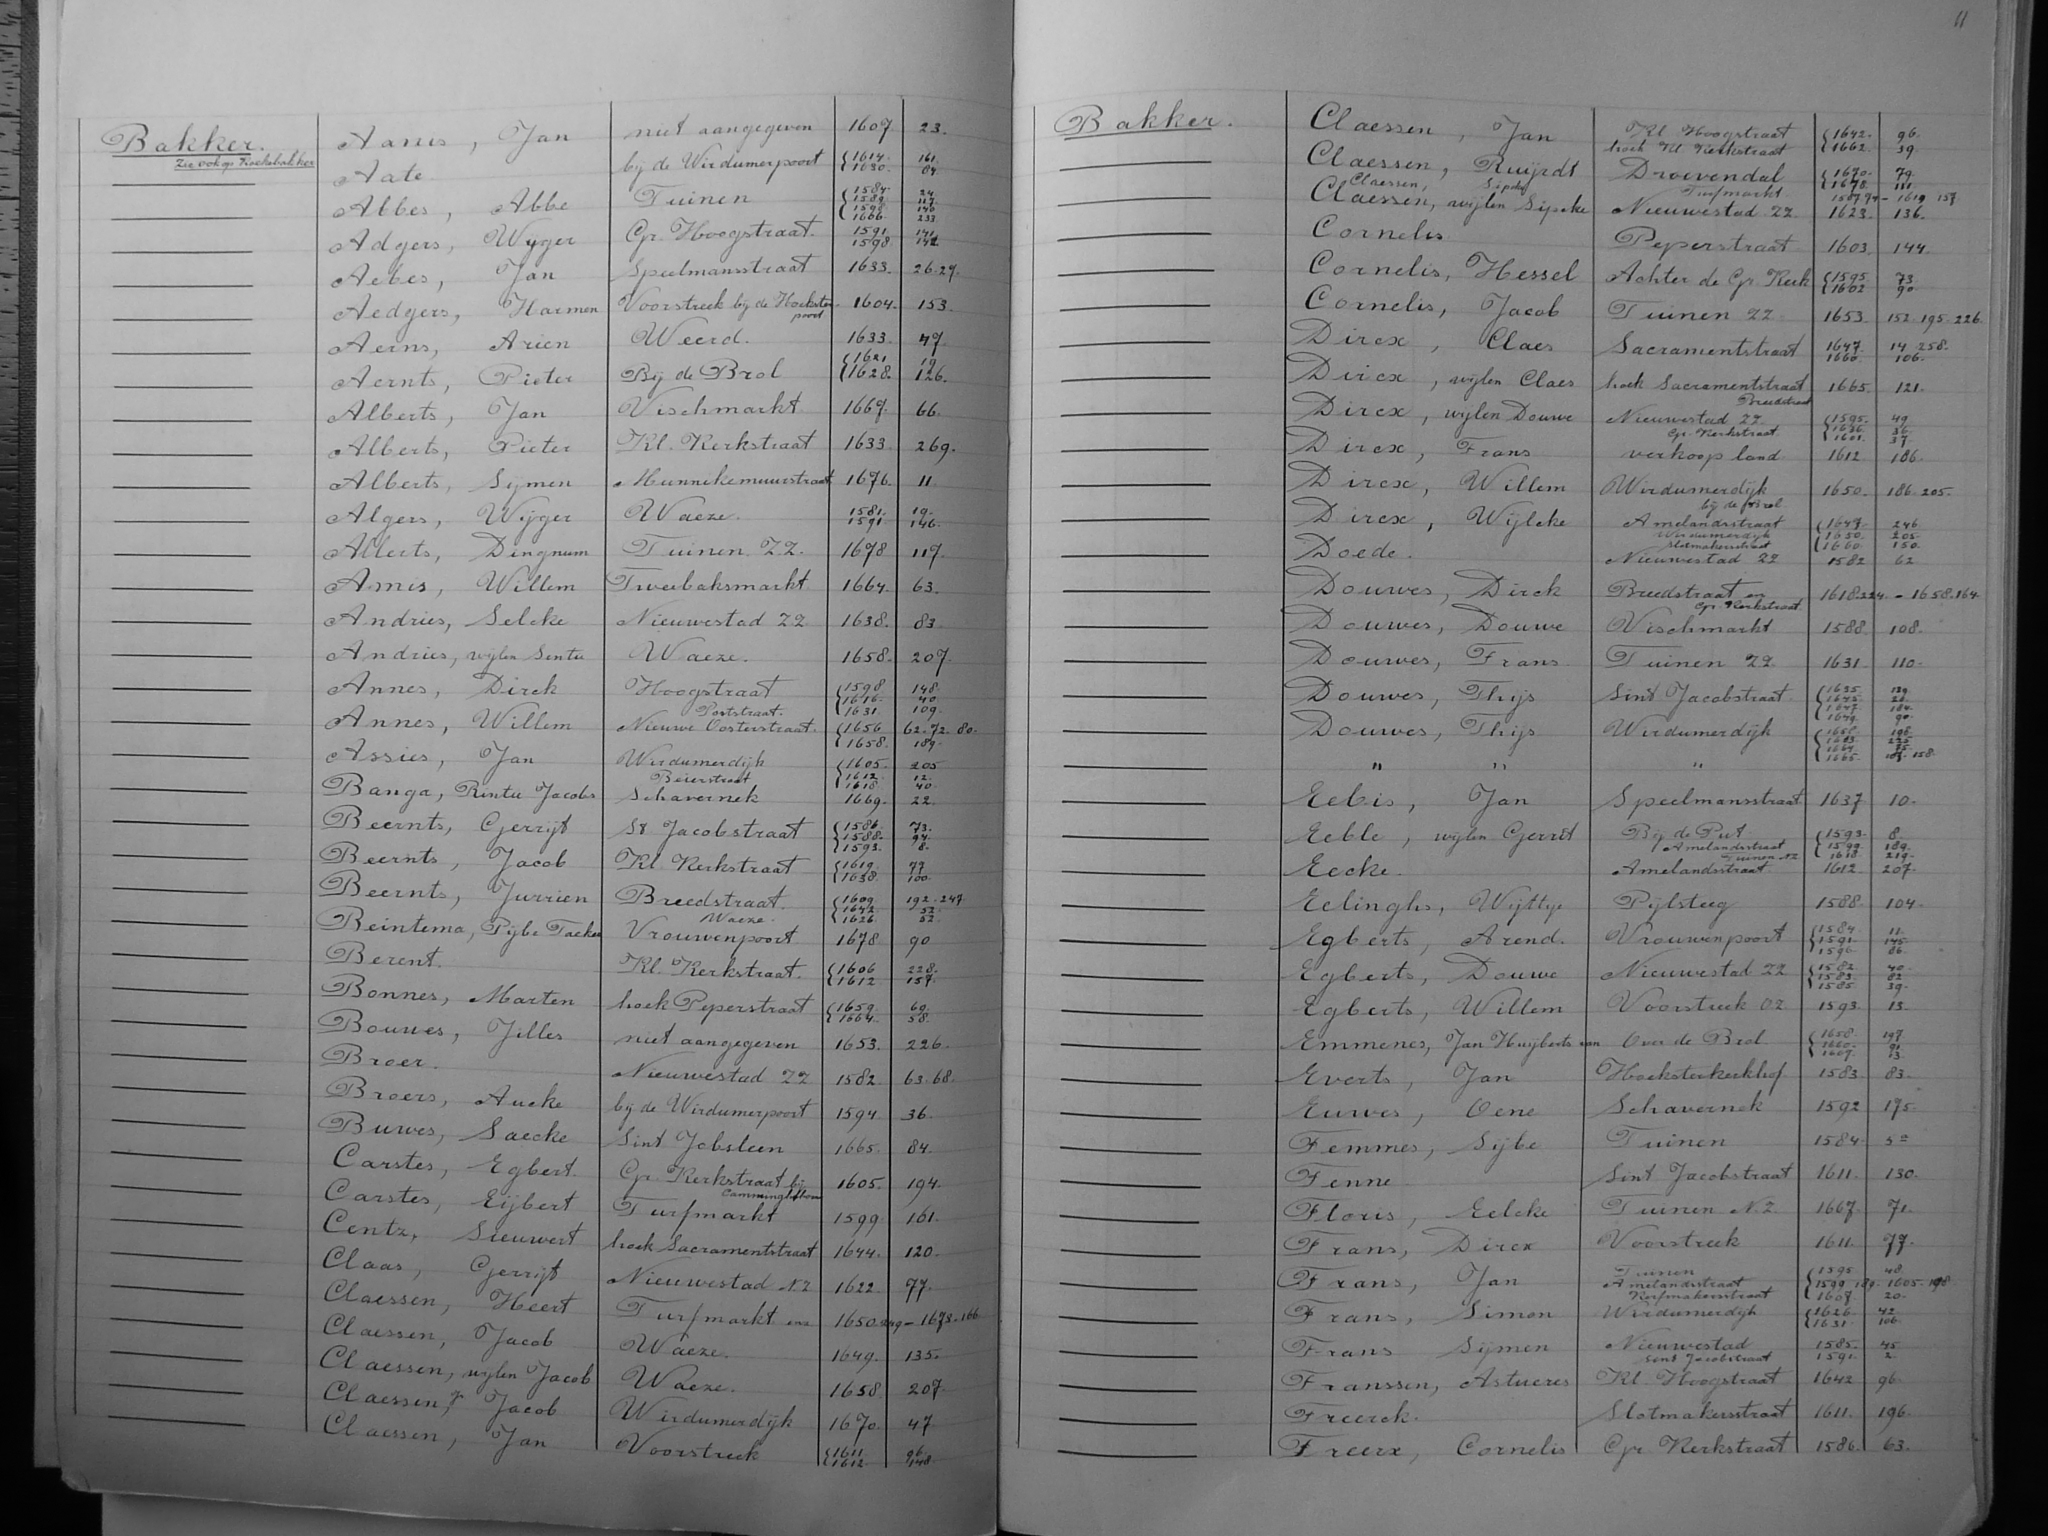 11
Bakker. Aanes, Jan niet aangegeven 1607 23.
Zie ook op Koekebakker
Aate bij de Wirdumerpoort 1614. 161.
1620. 84.
Abbes, Abbe Tuinen 1584. 24.
1589. 117.
1598. 140
1606 233.
Adgers, Wyger Gr. Hoogstraat. 1591 141
1598. 142
Aebes, Jan Speelmansstraat 1633. 26.27.
Aedgers, Harmen Voorstreek bij de Hoekster- 1604. 153.
poort
Aerns, Arien Weerd. 1633. 47.
Aernts, Pieter Bij de Brol 1621. 19.
1628. 126.
Alberts, Jan Vischmarkt 1667. 66.
Alberts, Pieter Kl. Kerkstraat 1633. 269.
Alberts, Sijmen Munnikemuurstraat 1676. 11.
Algers, Wijger Waeze. 1581. 19.
1591. 146.
Allerts, Dingnum Tuinen ZZ. 1678 117.
Amis, Willem Tweebaksmarkt 1664. 63.
Andries, Selcke Nieuwestad ZZ 1638. 83.
Andries, wijlen Sentse Waeze. 1658. 207.
Annes, Dirck Hoogstraat 1598 148.
1616. 40
Poststraat. 1631. 109.
Annes, Willem Nieuwe Oosterstraat. 1656 62.72.80.
1658. 189.
Assies, Jan Wirdumerdijk 1605. 205
Beierstraat 1612. 12.
1618. 40.
Banga, Rintse Jacobs Schavernek 1669. 22.
Beernts, Gerrijt St Jacobstraat 1586. 73.
1588. 94.
1593. 8.
Beernts, Jacob Kl. Kerkstraat 1619. 79
1638. 100.
Beernts, Jurrien Breedstraat. 1609. 192.247
1642. 52.
Waeze. 1626. 52.
Beintema, Pijbe Taekes Vrouwenpoort 1678 90
Berent. Kl. Kerkstraat. 1606 228.
1612 157.
Bonnes, Marten hoek Peperstraat 1659. 60.
1664. 58.
Bouwes, Jilles niet aangegeven 1653. 226.
Broer. Nieuwestad ZZ 1582. 63.68.
Broers, Aucke bij de Wirdumerpoort 1594. 36.
Buwes, Saecke Sint Jobsleen 1665. 84.
Carstes, Egbert. Gr. Kerkstraat bij 1605. 194.
Cammingahbon
Carstes, Eijbert Turfmarkt 1599. 161.
Centz, Sieuwert hoek Sacramentstraat 1644. 120.
Claas, Gerrijt Nieuwestad NZ 1622. 77.
Claessen, Heert Turfmarkt enz 1650.249 - 1673.166
Claessen, Jacob Waeze. 1649. 135.
Claessen, wijlen Jacob Waeze. 1658. 207.
Claessen, Jr Jacob Wirdumerdijk 1670. 47
Claessen, Jan Voorstreek 1611. 96.
1612. 148.
Bakker. Claessen, Jan Kl. Hoogstraat 1642. 96.
hoek Kl Kerkstraat 1662. 39.
Claessen, Ruijrdt Droevendal 1670. 79.
1678. 111.
Claessen, Sipcke Turfmarkt 1587 74 - 1619 157
Claessen, wijlen Sipcke Nieuwestad ZZ 1623. 136.
Cornelis Peperstraat 1603. 144.
Cornelis, Hessel Achter de Gr. Kerk 1595. 73.
1602 90.
Cornelis, Jacob Tuinen ZZ 1653. 152.195.226.
Dircx, Claes Sacramentstraat 1647. 14. 258.
1660. 106.
Dircx, wijlen Claes hoek Sacramentstraat 1665. 121.
Breedstraat
Dircx, wijlen Douwe Nieuwestad ZZ. 1595. 49.
1636. 36.
Gr. Kerkstraat 1601. 37.
Dircx, Frans verkoop land 1612. 186.
Dircx, Willem Wirdumerdijk 1650. 186.205.
bij de Brol
Dircx, Wijlcke Amelandsstraat 1647. 246
Wirdumerdijk 1650. 205.
Slotmakerstraat 1660. 150.
Doede. Nieuwestad ZZ 1582 62
Douwes, Dirck Breedstraat en 1618.224. - 1658.164.
Gr. Kerkstraat.
Douwes, Douwe Vischmarkt 1588. 108.
Douwes, Frans Tuinen ZZ. 1631. 110.
Douwes, Thijs Sint Jacobstraat 1625. 129.
1645. 26.
1647. 184.
1649. 90.
Douwes, Thijs Wirdumerdijk 1658. 198.
1663. 225.
1664. 85.
" " " 1665. 109. 158.
Eebis, Jan Speelmansstraat 1637 10.
Eeble, wijlen Gerrit Bij de Put 1593. 8.
Amelandsstraat 1599. 189.
Tuinen NZ 1618. 219.
Eecke. Amelandsstraat 1612. 207.
Eelinghs, Wyttye Pijlsteeg 1588. 104.
Egberts, Arend. Vrouwenpoort 1584. 11.
1591. 145.
1596. 86.
Egberts, Douwe Nieuwestad ZZ 1582. 40.
1583. 82.
1585. 39.
Egberts, Willem Voorstreek OZ 1593. 13.
Emmenes, Jan Huijberts van Over de Brol 1658. 197
1660. 91
1669. 13.
Everts, Jan Hoeksterkerkhof 1583. 83.
Euwes, Oene Schavernek 1592 175.
Femmes, Sijbe Tuinen 1584. 5=
Fenne Sint Jacobstraat 1611. 130.
Floris, Eelcke Tuinen NZ 1667. 71.
Frans, Dircx Voorstreek 1611. 77.
Frans, Jan Tuinen 1595. 48
Amelandsstraat 1599.189. 1605.198
Korfmakersstraat 1607. 20.
Frans, Simon Wirdumerdijk 1626. 42.
1631. 106.
Frans Sijmen Nieuwestad 1585. 45
Sint Jacobstraat 1591. 2.
Franssen, Astueres Kl. Hoogstraat 1642 96.
Freerck. Slotmakersstraat 1611. 196.
Freerx, Cornelis Gr. Kerkstraat 1586. 63.